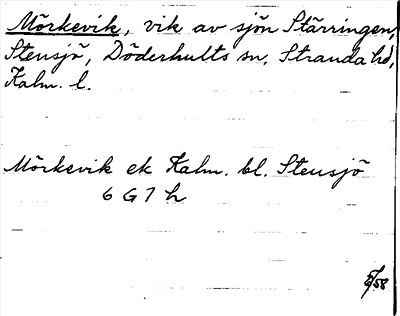 Mörkevik, vik av sjön Stärringen,
Stensjö, Döderhults sn, Stranda hd,
Kalm. l.
Mörkevik ek Kalm. bl. Stensjö
6 G 7 h